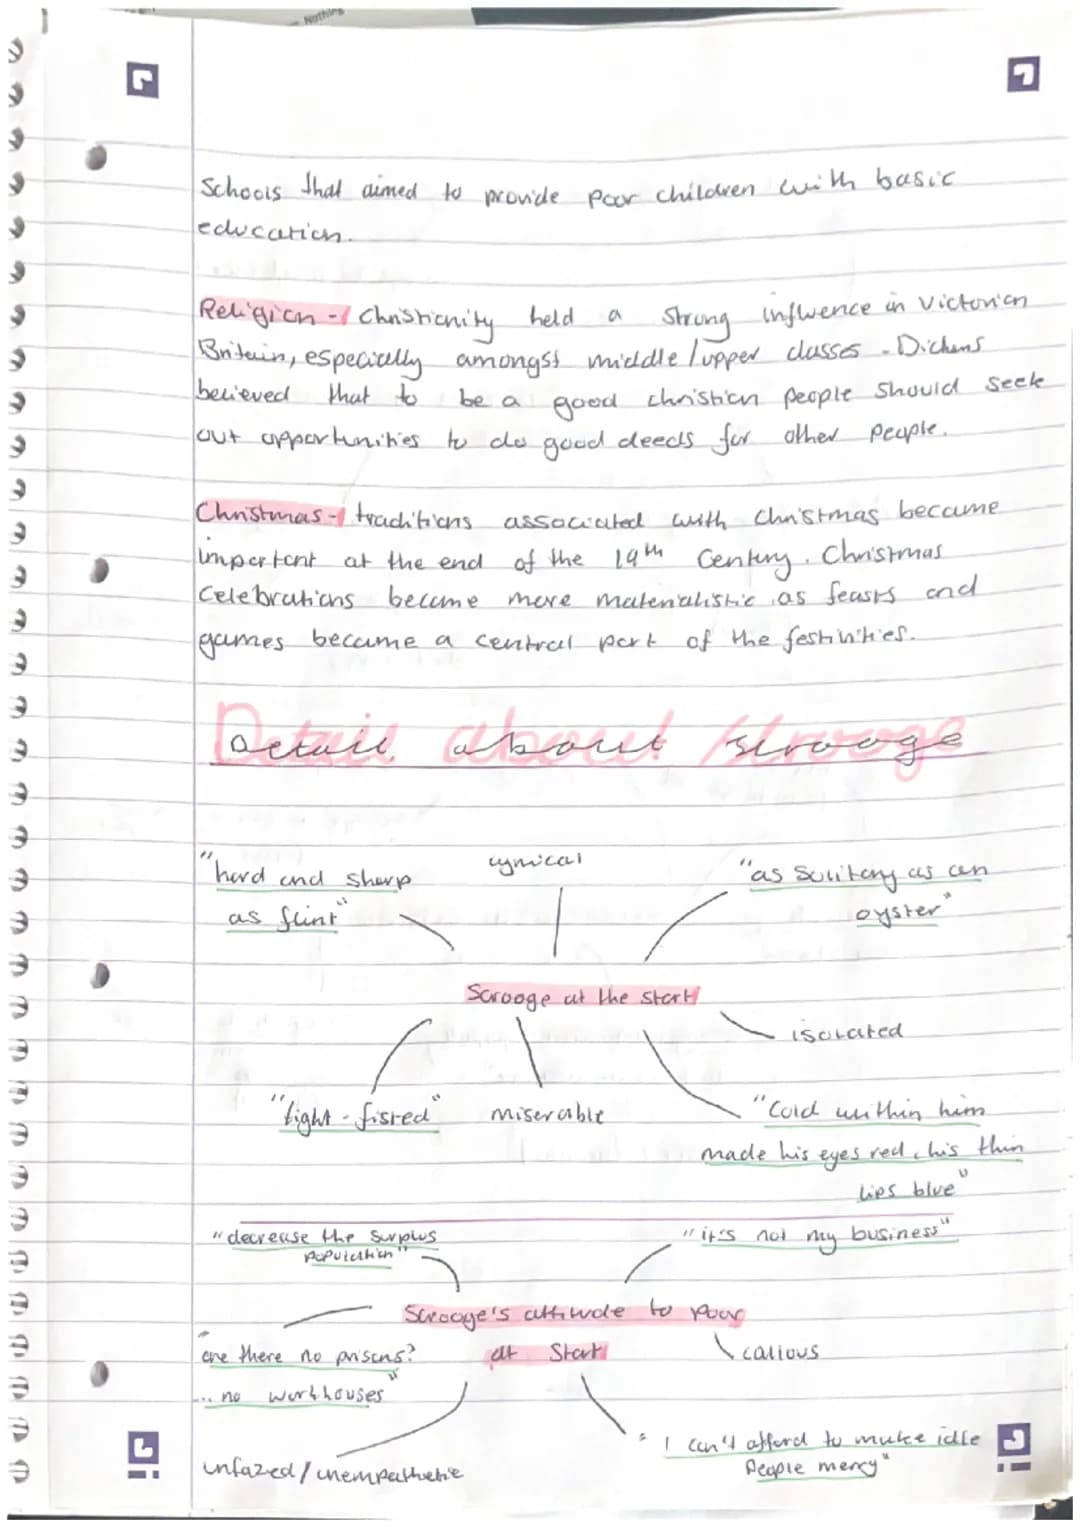 Nothing
Schools that aimed to provide poor children with basic
education.
Religion - Christianity held a strong influence in Victorian
Britain, especially amongst middle/upper classes. Dickens
believed that to be a good christian people should seek
out opportunities to do good deeds for other people.
Christmas - traditions associated with christmas became
important at the end of the 19th Century. Christmas
celebrations became more materialistic as feasts and
games became a central part of the festivities.
Detail about scrooge
"hard and sharp
as flint"
cynical
"as solitary as an
oyster"
Scrooge at the start
isolated
"tight-fisted"
miserable
"Cold within him
made his eyes red, his thin
lips blue"
"decrease the surplus
population"
"it's not my business"
Scrooge's attitude to poor
at start
"are there no prisons?
... no workhouses"
callous
unfazed/unempathetic
"I can't afford to make idle
People merry"